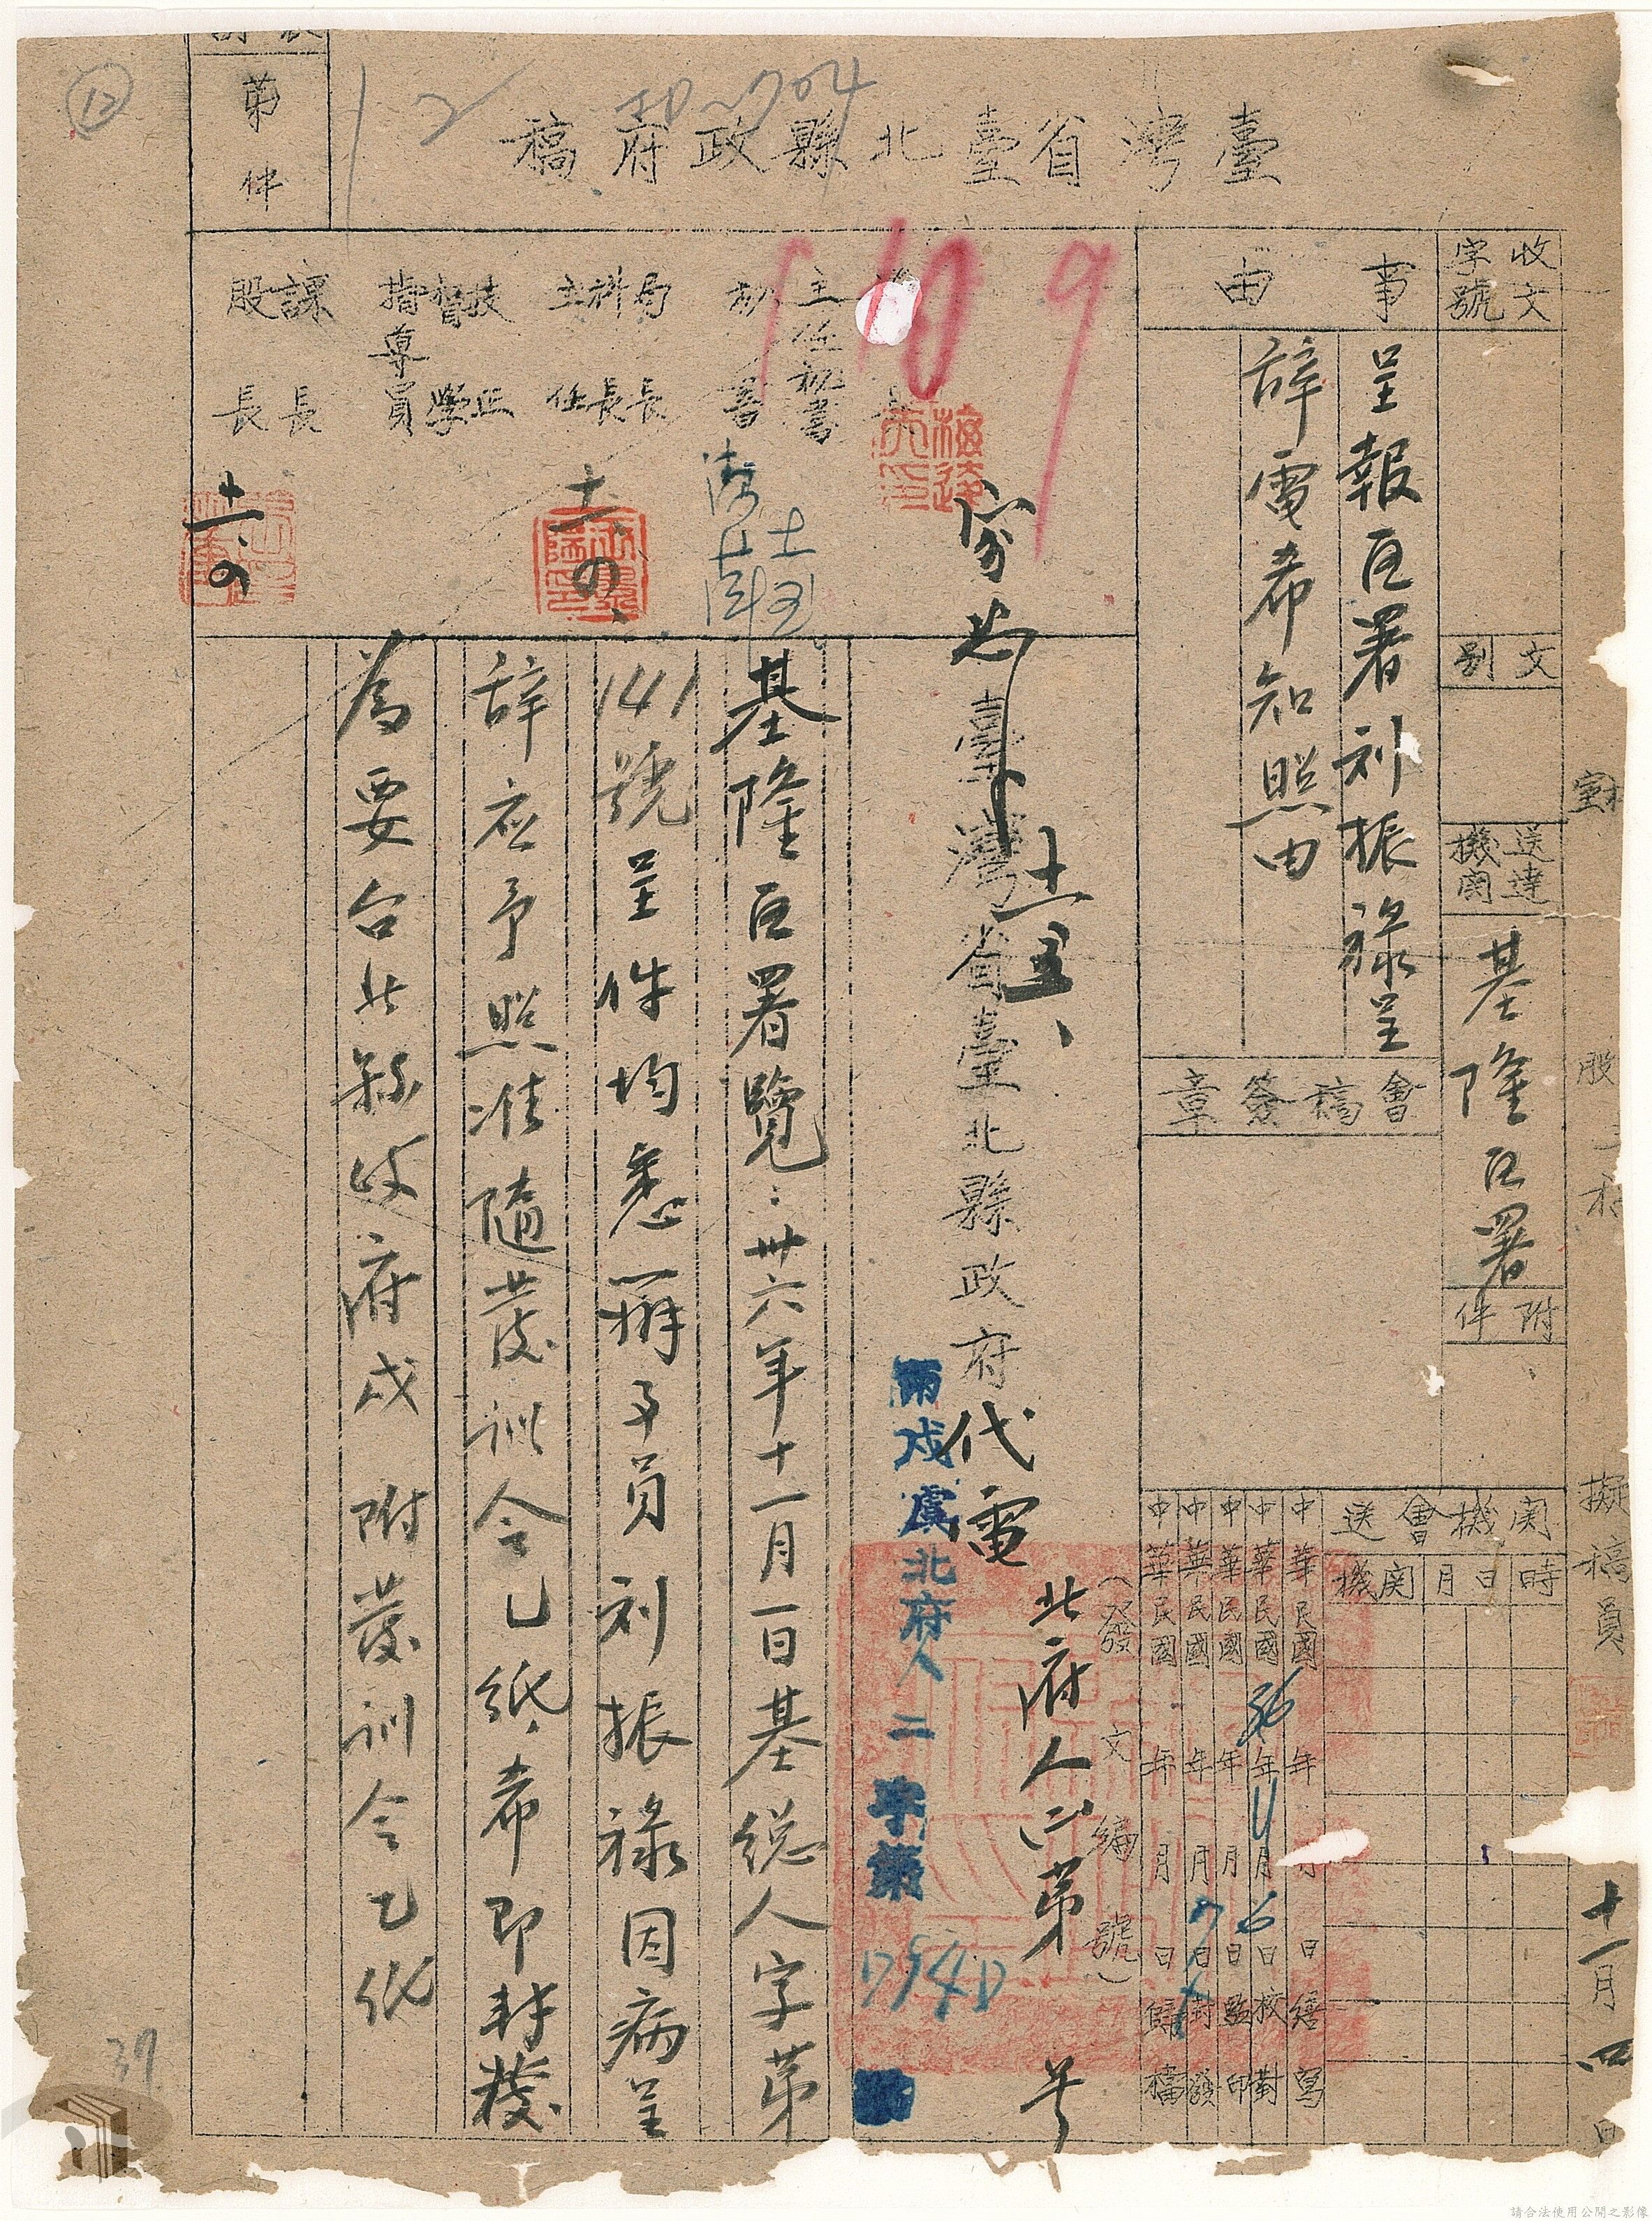 臺灣省臺北縣政府稿
第 件
12
收文字號
文別
送達機關
基隆區署
附件
事由
呈報區署刘振祿呈
辞電希知照由
會稿簽章
關機會送
時 日月 關機
擬稿員
十一月四日
中華民國 年 月 日繕寫
中華民國36年11月6日校對
中華民國 年 月 日監印
中華民國 年 月7日封發
中華民國 年 月 日歸檔
(發文編號)
主任秘書
秘書
局長
科長
主任
技正
督學
指導員
課長
股長
十一、四、
十一、四
十一、五、
臺灣省臺北縣政府代電
北府人二第 号
戌虞北府人二字第
號
基隆区署覽:卅六年十一月一日基總人字第
1411號呈件均悉辦事員刘振祿因病呈
辞应予照准隨發訓令乙紙希即轉發
為要台北縣政府戌 附發訓令乙紙
39
請合法使用公開之影像